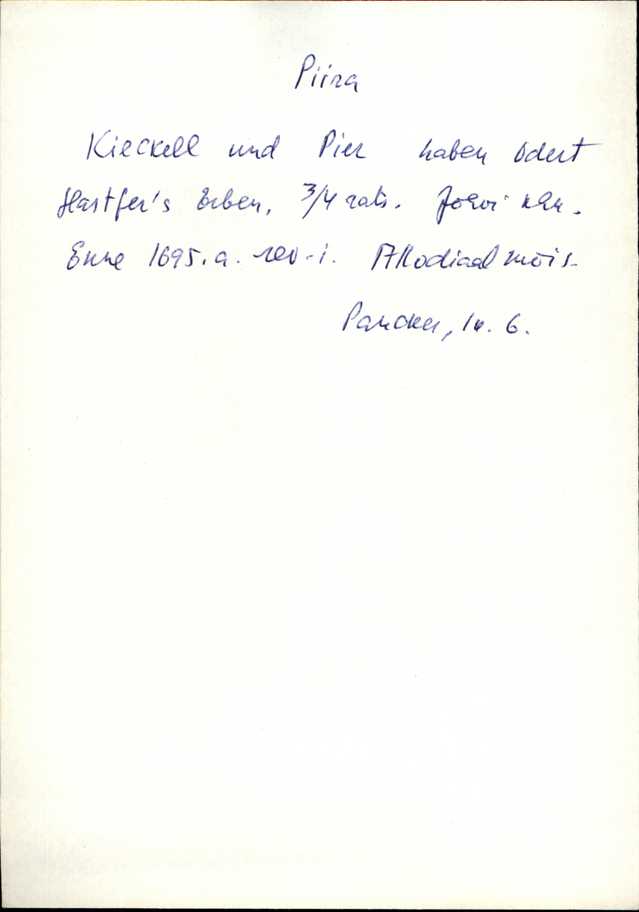 Piira
Kieckell und Pier haben Odert
Hastfer's Erben, 3/4 rats. Jõhvi khn.
Enne 1695. a. rev-i. Allodiaalmõis.
Paucker, lk. 6.